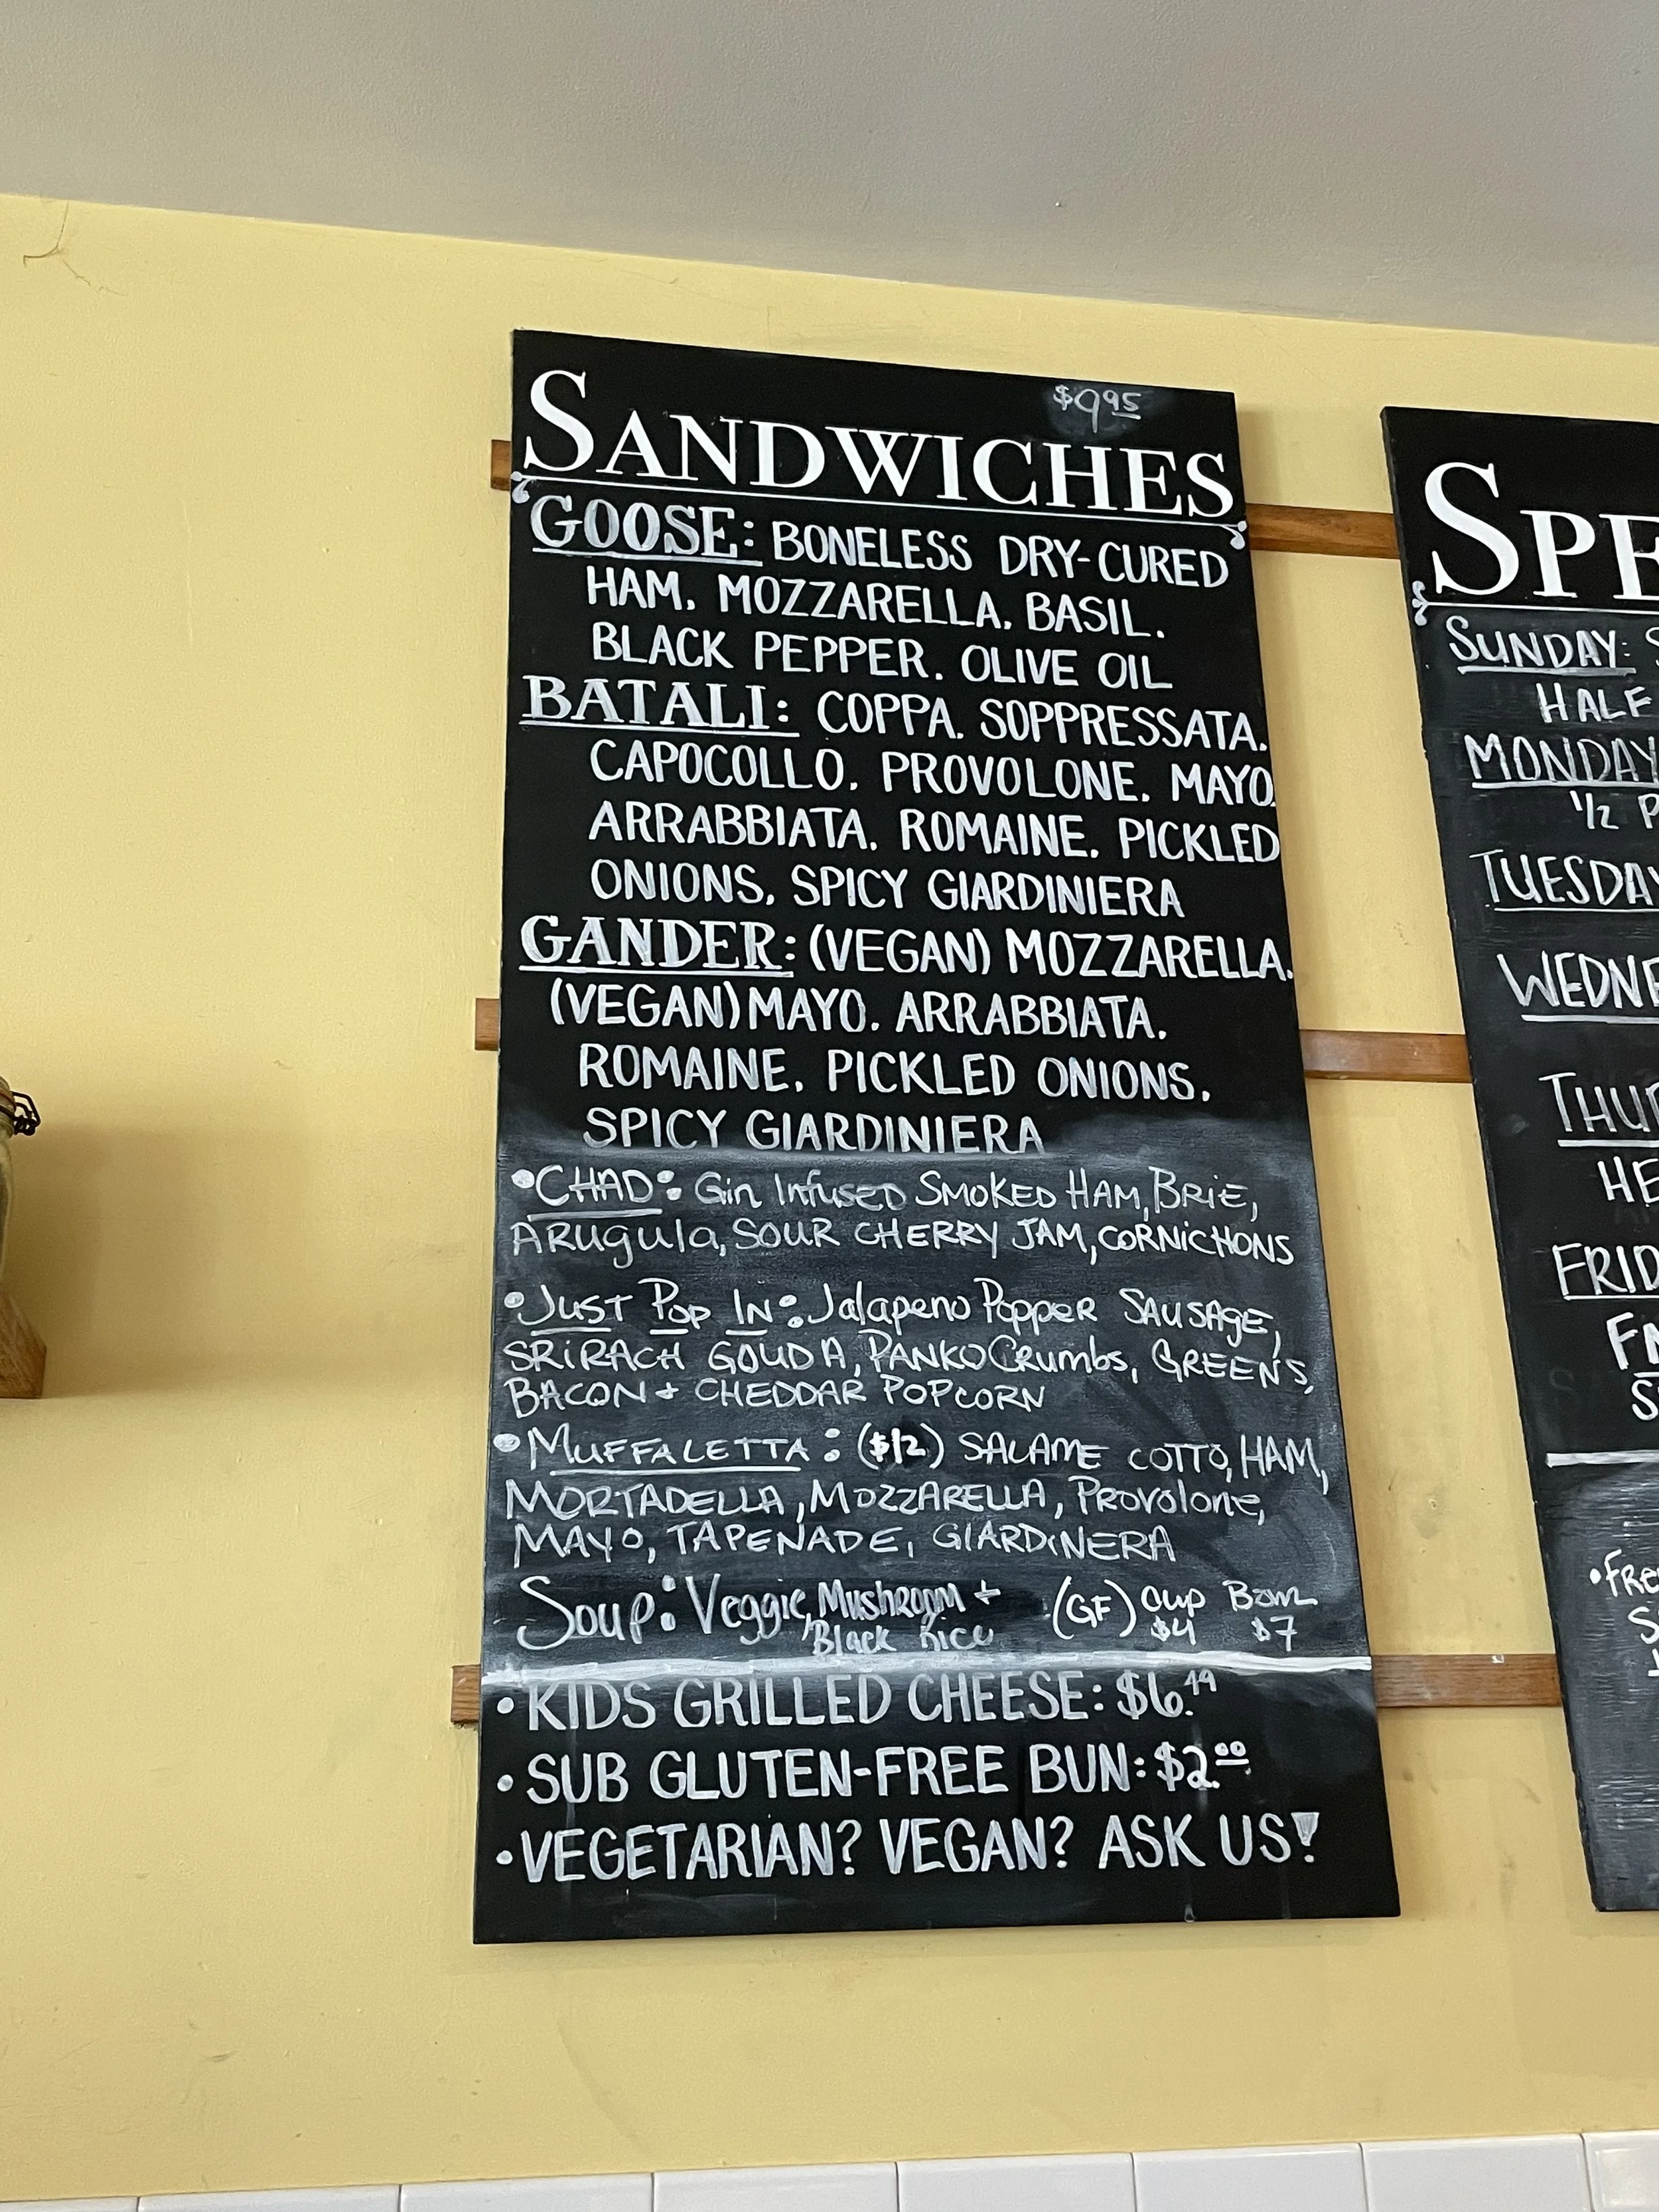 $9.95
SANDWICHES
GOOSE: BONELESS DRY-CURED
HAM, MOZZARELLA, BASIL,
BLACK PEPPER, OLIVE OIL
BATALI: COPPA, SOPPRESSATA,
CAPOCOLLO, PROVOLONE, MAYO,
ARRABBIATA, ROMAINE, PICKLED
ONIONS, SPICY GIARDINIERA
GANDER: (VEGAN) MOZZARELLA,
(VEGAN) MAYO, ARRABBIATA,
ROMAINE, PICKLED ONIONS,
SPICY GIARDINIERA
•CHAD: Gin Infused SMOKED HAM, BRIE,
ARugula, SOUR CHERRY JAM, CORNICHONS
•JUST POP IN: Jalapeno Popper SAUSAGE,
SRIRACH GOUDA, PANKO CRumbs, GREENS,
BACON + CHEDDAR POPCORN
•MUFFALETTA: ($12) SALAME COTTO, HAM,
MORTADELLA, MOZZARELLA, Provolone,
MAYO, TAPENADE, GIARDINERA
Soup: Veggie, Mushroom + (GF) Cup Bowl
Black Rice $4 $7
•KIDS GRILLED CHEESE: $6.49
•SUB GLUTEN-FREE BUN: $2.00
•VEGETARIAN? VEGAN? ASK US!
SUNDAY:
HALF
MONDAY
1/2
TUESDAY